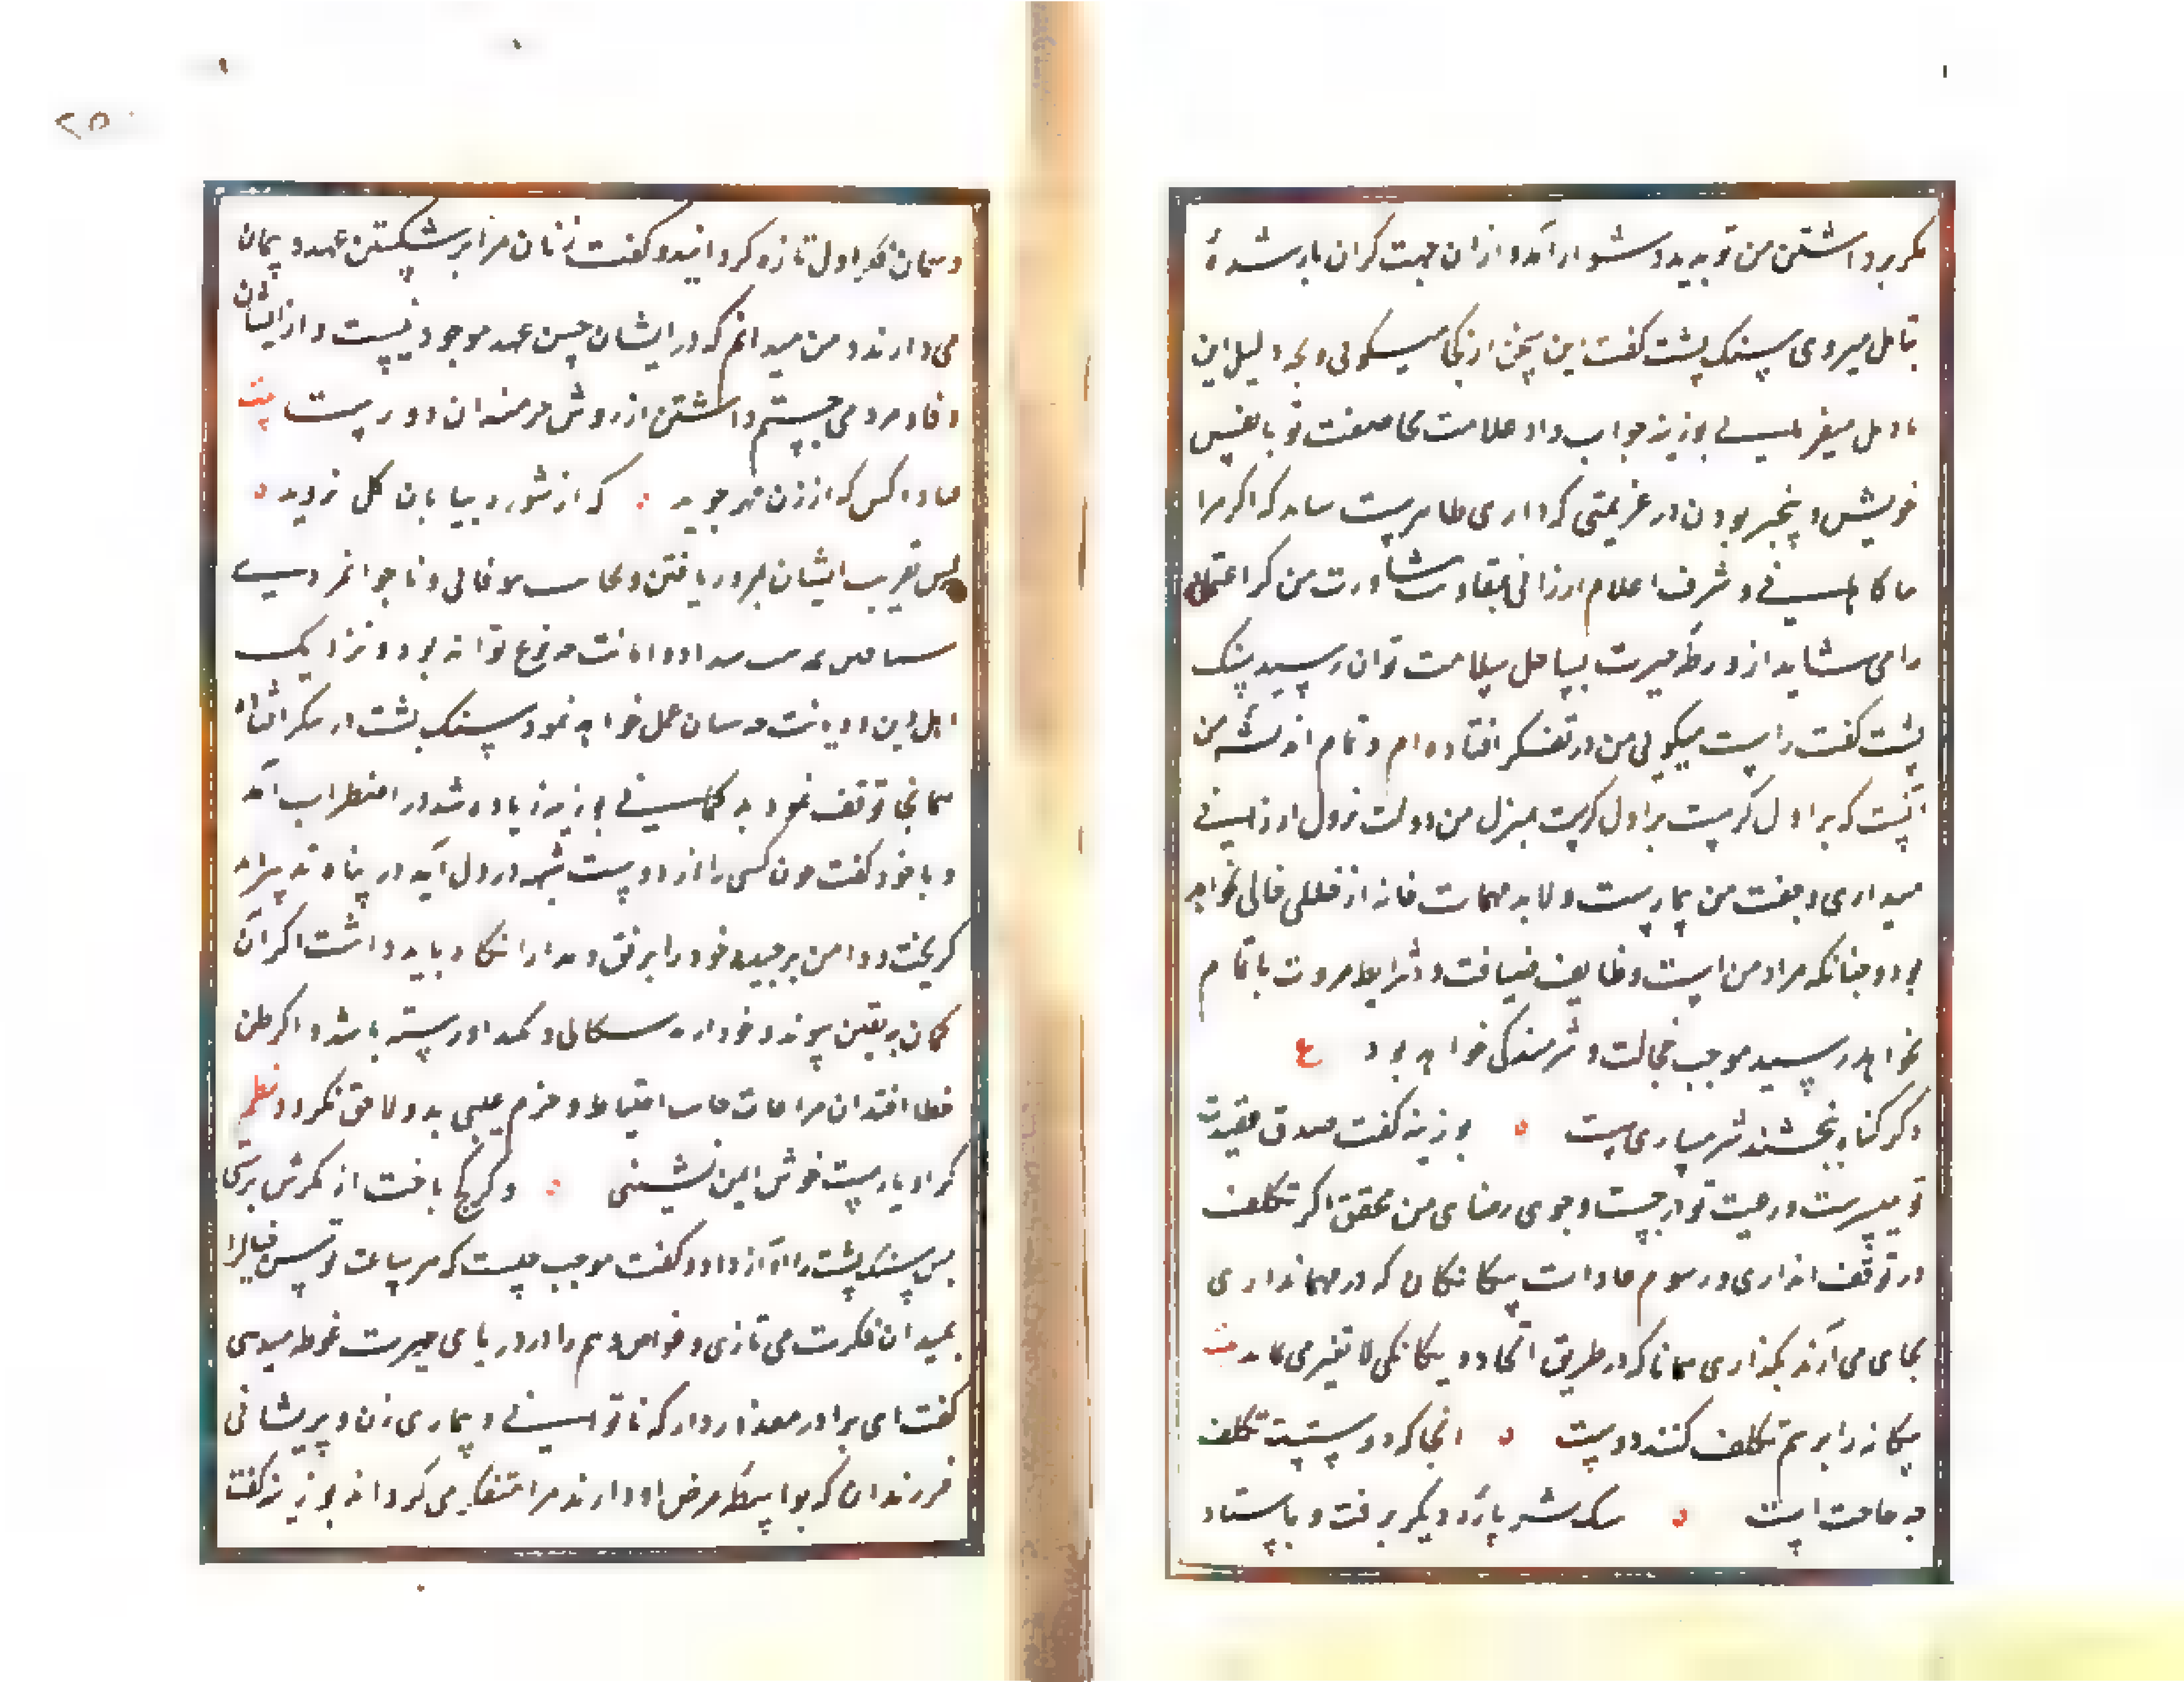 مکر برداشتن من تو بدید دشوار آمد و ازان جهت کران بار شدهٔ
بتامل میروی سنک پشت کفت این سخن از کجا میکویی و بچه دلیل این
تامل میفرمایی بوزینه جواب داد علامت مخاصمت تو با نفس
خویش و متحیر بودن در عزیمتی که داری ظاهرست شاید که اکر مرا
اکاهی و شرف اعلام ارزانی بمقاومت مشاورت من که اعتماد
را می شاید از ورطه حیرت بساحل سلامت توان رسید سنک
پشت کفت راست میکویی من در تفکر افتاده ام و تمام اندیشه من
آنست که بار اول کرست بر اول کرت بمنزل من دولت نزول ارزانی
میداری و جفت من بیمارست و لابد مهمات خانه از خللی خالی نخواهد
بود و چنانکه مراد من است وظایف ضیافت و شرایط مروت باتمام
نخواهد رسید موجب خجالت و شرمندکی خواهد بود ع
وکر کناه ببخشند شرمساری هست بوزینه کفت صدق عقیدت
تو مقررست و رغبت تو در جست و جوی رضای من محقق اکر تکلف
در توقف انداری و رسوم عادات بیکانکان که در مهمانداری
بجای می آرند بکذاری همانا که در طریق اتحاد و یکانکی لایقتر می نماید بیت
بیکانه را برسم تکلف کنند دوست انجا که دوستیست تکلف
چه حاجت است سنک پشت پاره دیکر برفت و باستاد
۲۵۰
و همان فکر اول تازه کردانید و کفت زنان مرا بر شکستن عهد و پیمان
می دارند و من میدانم که در ایشان حسن عهد موجود نیست و از ایشان
وفا و مردمی چشم داشتن از روش خردمندان دورست بیت
مبادا کس که از زن مهر جوید که از شوره بیابان کل نروید
پس بفریب ایشان مغرور یافتن و بجانب بیوفایی و ناجوانمردی
شتافتن مناسب سداد و امانت مرفوع تواند بود و نزدیک
اهل دین و دیانت چه سان عمل خواهد نمود سنک پشت در مکر افتاد
همانجا توقف نمود بدکمانی بوزینه زیاده شد در اضطراب آمد
و با خود کفت چون کسی را از دوست شبهه در دل آید در پناه تدبیر باید
کریخت و دامن برچیده خود را برفق و مدارا نکاه باید داشت اکر آن
کمان بیقین پیوندد خود از بدسکالی و کید او رسته باشد و اکر ظن
خطا افتد ازان مراعات جانب احتیاط و حزم عیبی بدو لاحق نکردد نظم
کر او یارست خوش ایمن نشینی و کر کج باخت از مکرش برستی
پس سنک پشت را آواز داد و کفت موجب چیست که هر ساعت توسن خیال را
بمیدان فکرت می تازی و غواص وهم را در دریای حیرت غوطه میدهی
کفت ای برادر معذور دار که ناتوانی و بیماری زن و پریشانی
فرزندان که بواسطه مرض او دارند مرا متفکر می کرداند بوزینه کفت